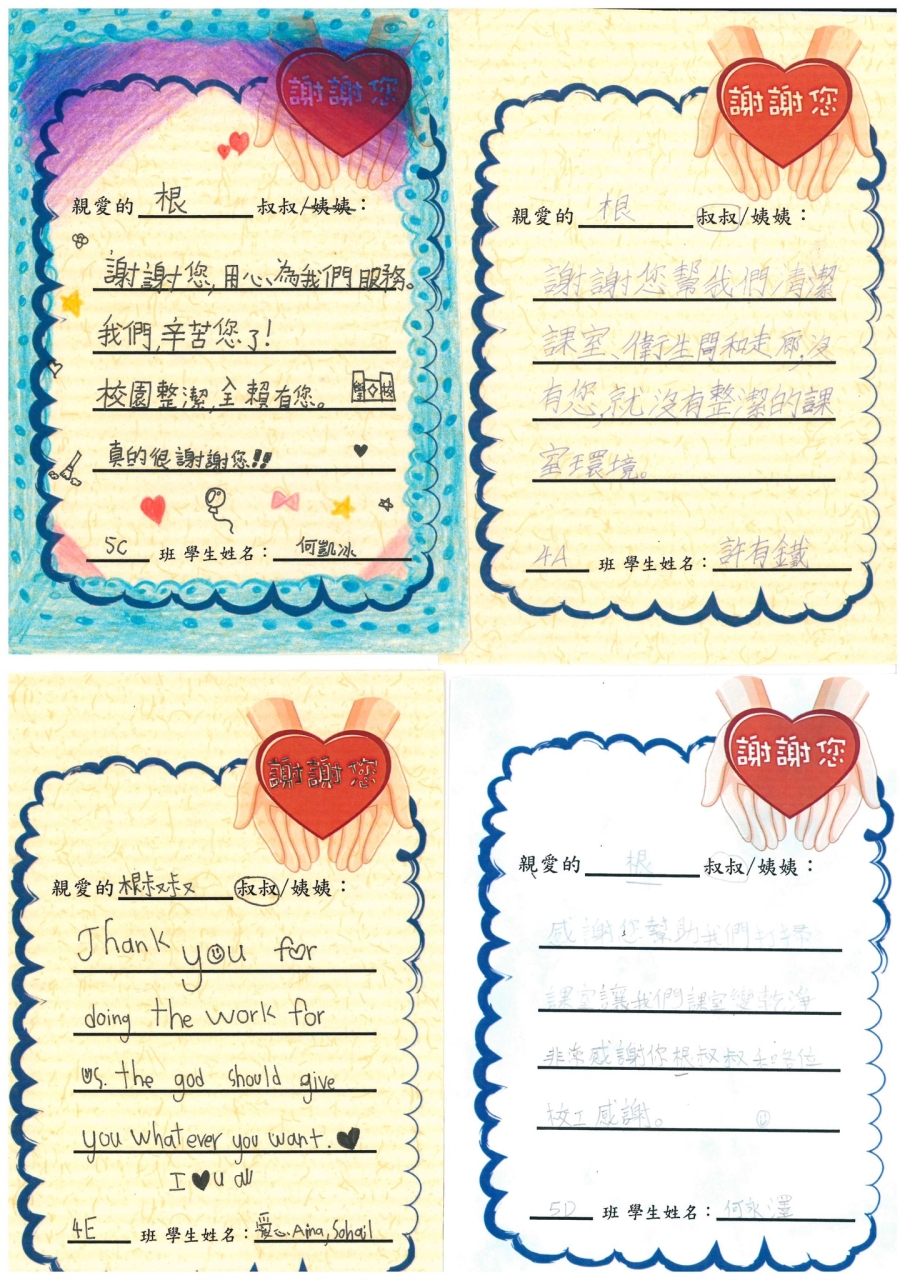 謝謝您
親愛的 根 叔叔/姨姨：
謝謝您,用心為我們服務。
我們,辛苦您了!
校園整潔,全賴有您。
真的很謝謝您!!
5C 班 學生姓名： 何凱冰
謝謝您
親愛的 根 叔叔/姨姨：
謝謝您幫我們清潔
課室、衛生間和走廊,沒
有您,就沒有整潔的課
室環境。
4A 班 學生姓名： 許有鐵
謝謝您
親愛的 根叔叔 叔叔/姨姨：
Thank you for
doing the work for
us. the god should give
you whatever you want.
I ♥ u all
4E 班 學生姓名： 愛心, Aina, Sohail
謝謝您
親愛的 根 叔叔/姨姨：
感謝您幫助我們打掃
課室讓我們課室變乾淨
非常感謝你根叔叔和各位
校工感謝。
5D 班 學生姓名： 何永澤